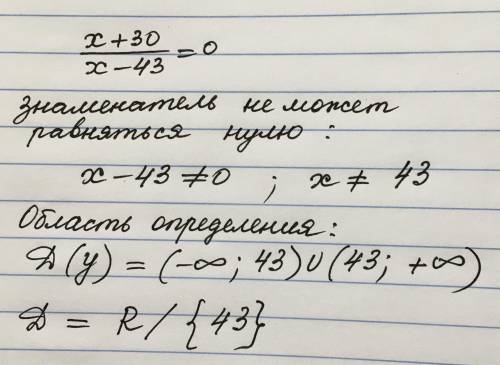 x+30
x-43 =0
знаменатель не может
равняться нулю:
x-43≠0 ; x≠ 43
Область определения:
D(y) = (-∞; 43)U(43; +∞)
D = R/{43}